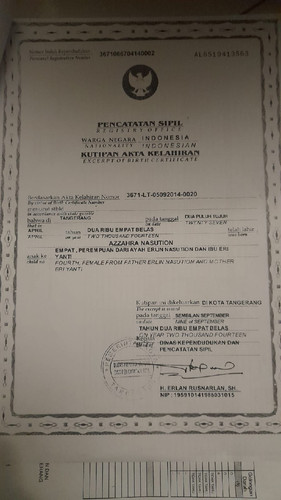 3671060704140002
AL6510413563
PENCATATAN SIPIL
REGISTRY OFFICE
WARGA NEGARA INDONESIA
NATIONALITY INDONESIAN
KUTIPAN AKTA KELAHIRAN
EXCERPT OF BIRTH CERTIFICATE
Berdasarkan Akta Kelahiran Nomor 3671-LT-05092014-0020
By virtue of Birth Certificate Number
menurut stbld
in accordance with state gazette
bahwa di TANGERANG pada tanggal DUA PULUH TUJUH
that in on date TWENTY SEVEN
APRIL tahun DUA RIBU EMPAT BELAS telah lahir
APRIL year TWO THOUSAND FOURTEEN was born
AZZAHRA NASUTION
anak ke EMPAT, PEREMPUAN DARI AYAH ERLIN NASUTION DAN IBU ERI
YANTI
child no FOURTH, FEMALE FROM FATHER ERLIN NASUTION AND MOTHER
ERI YANTI
Kutipan ini dikeluarkan DI KOTA TANGERANG
The excerpt is issued
pada tanggal SEMBILAN SEPTEMBER
on date NINE OF SEPTEMBER
TAHUN DUA RIBU EMPAT BELAS
ON YEAR TWO THOUSAND FOURTEEN
Kepala DINAS KEPENDUDUKAN DAN
PENCATATAN SIPIL
H. ERLAN RUSNARLAN, SH